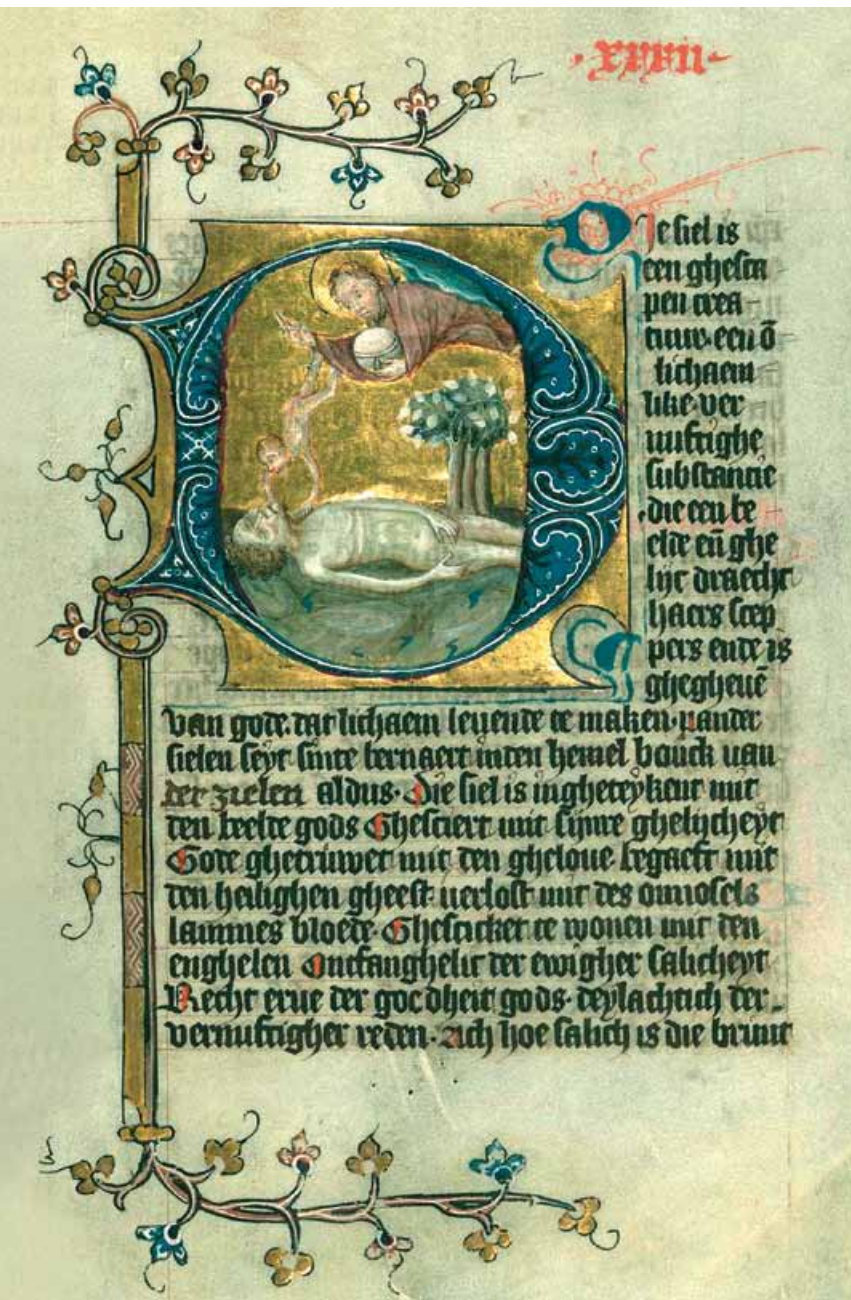 ·xxxii·
Die siel is
een ghesca
pen crea
tuur. een ō
lichaem
like ver
nuftighe
substancie
die een be
elde eñ ghe
lijc draecht
haers scep
pers ende is
ghegheuē
van gode. dat lichaem leuende te maken. vander
sielen seyt sinte bernaert inden hemel bouck van
der zielen aldus. Die siel is ingheteykent mit
den beelde gods Ghesciert mit sijnre ghelijcheyt
Gode ghetruwet mit den gheloue. begaeft mit
den heilighen gheest. verlost mit des onnosels
lammes bloede. Ghescicket te wonen mit den
enghelen Ontfanghelic der ewigher salicheyt
Recht erue der gocdheit gods. deylachtich der
vernuftigher reden. Ach hoe salich is die bruut